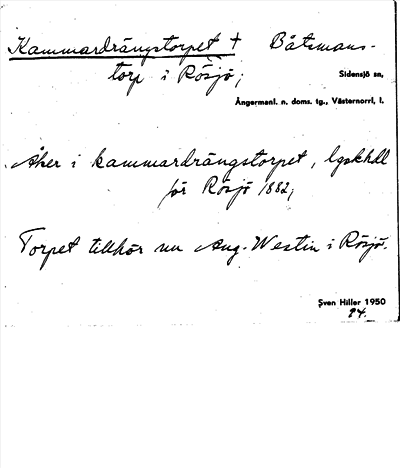 Kammardrängstorpet + Båtsmans-
torp i Rösjö;
Sidensjö sn,
Ångermanl. n. doms. tg., Västernorrl. l.
Åker i kammardrängstorpet, lgskhdl
för Rösjö 1882;
Torpet tillhör nu Aug. Westin i Rösjö.
Sven Hiller 1950